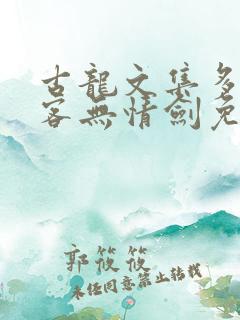 古龍文集多
客無情劍免
郭筱筱
未任同意禁止转载